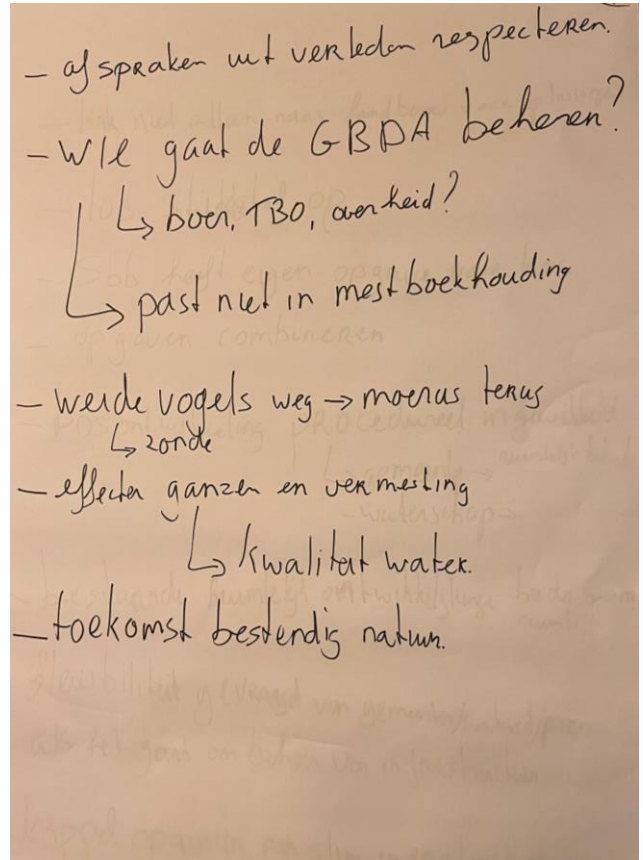 - afspraken uit verleden respecteren.
- Wie gaat de GBDA beheren?
↳ boer, TBO, overheid?
↳ past niet in mestboekhouding
- weide vogels weg → moeras terug
↳ zonde
- effecten ganzen en vermesting
↳ kwaliteit water.
- toekomst bestendig natuur.